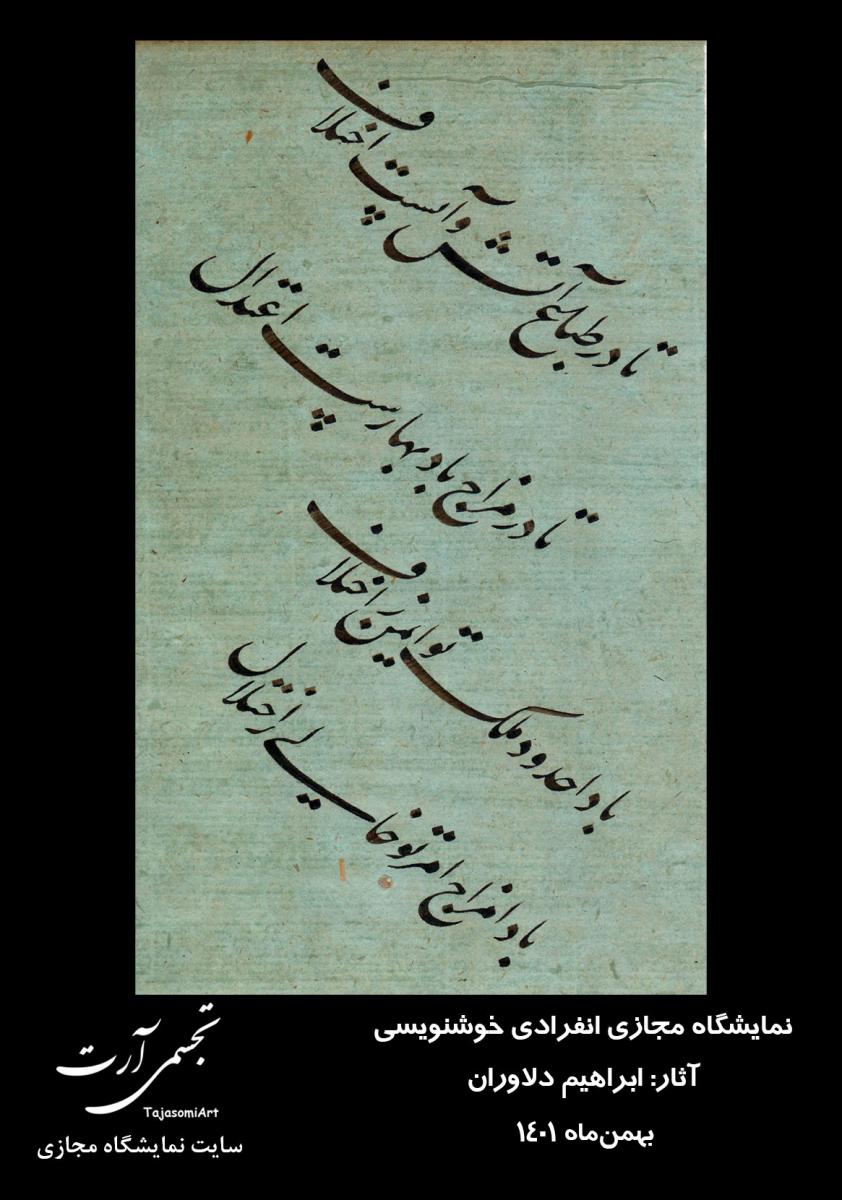 تا در طبایع آتش و آبست اختلاف
تا در مزاج باد بهارست اعتدال
بادا حدود ملک تو ایمن ز اختلاف
بادا مزاج امر تو خالی ز اختلال
نمایشگاه مجازی انفرادی خوشنویسی
آثار: ابراهیم دلاوران
بهمن‌ماه ۱٤۰۱
تجسمی آرت
TajasomiArt
سایت نمایشگاه مجازی